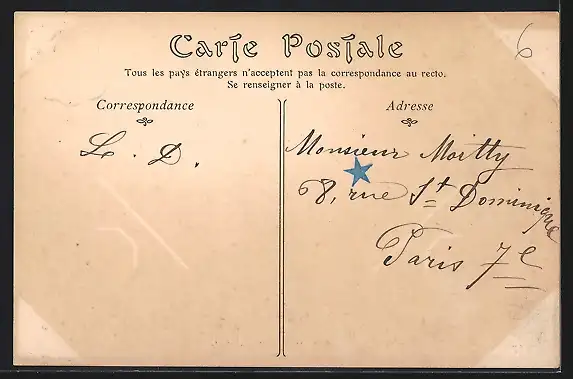 Carte Postale
Tous les pays étrangers n'acceptent pas la correspondance au recto.
Se renseigner à la poste.
Correspondance
L. D.
Adresse
Monsieur Moitty
68, rue St Dominique
Paris 7e
6